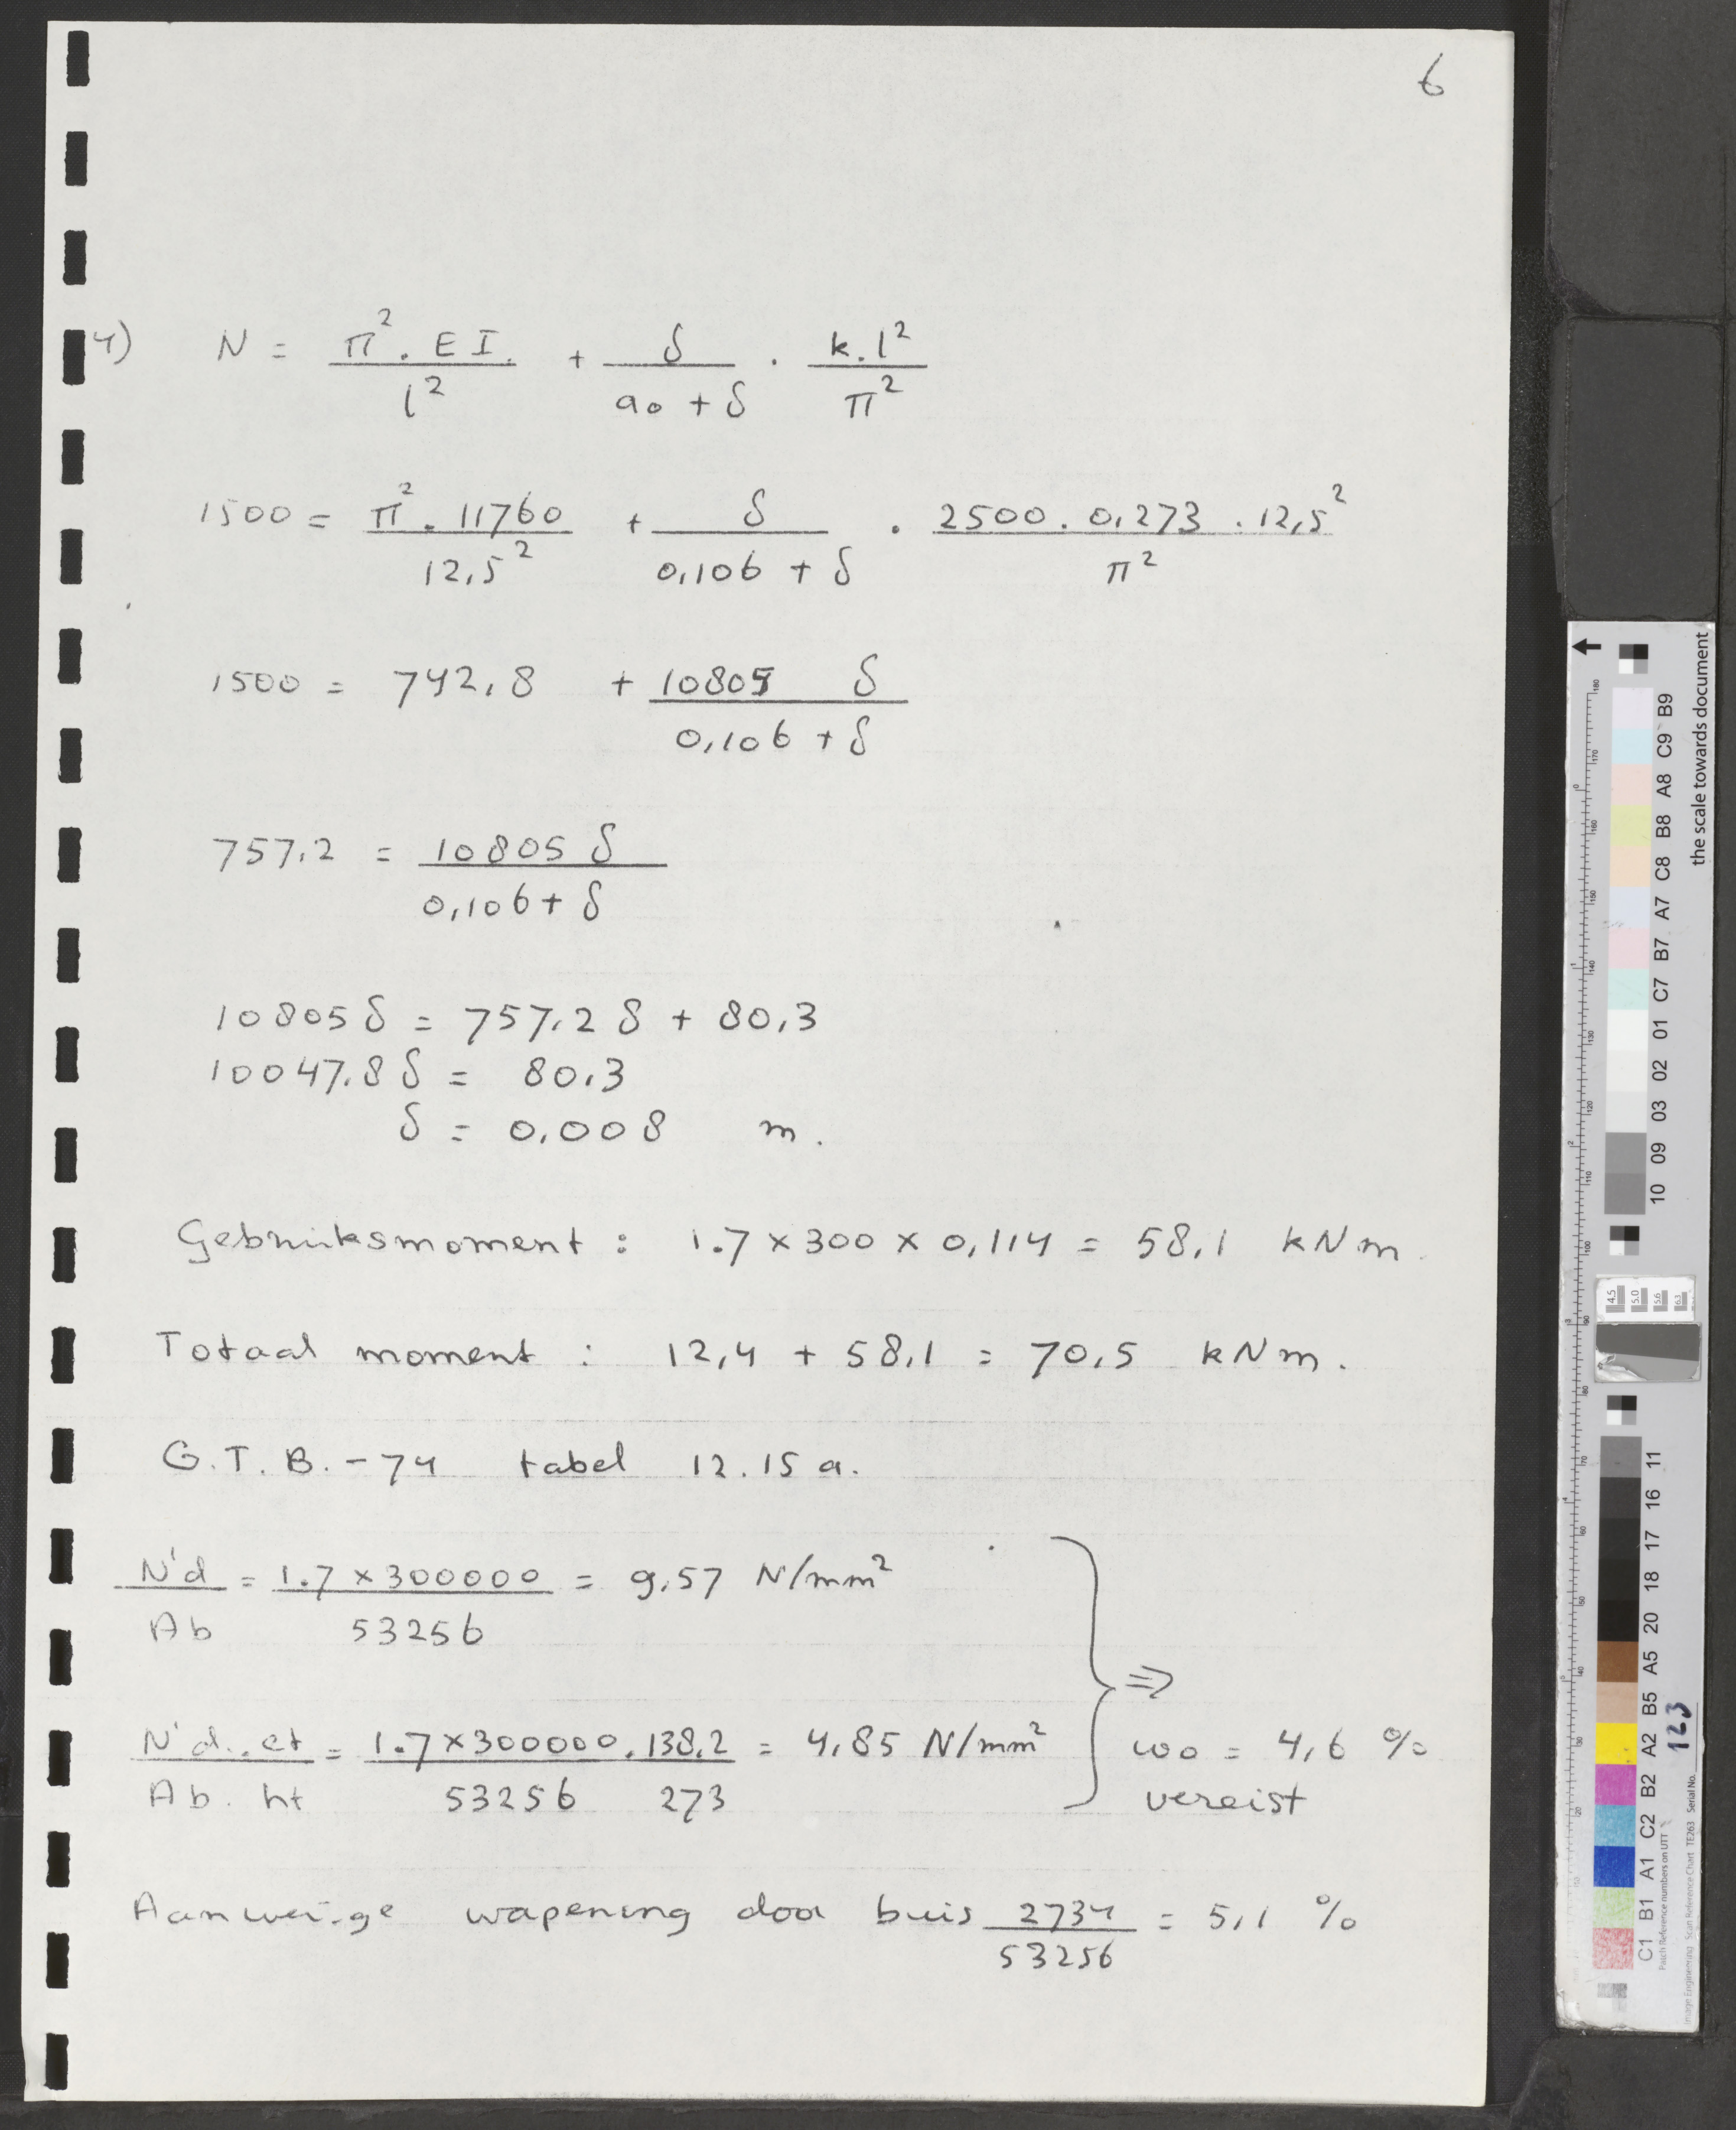 6
4) N = π². EI. / l² + δ / a₀ + δ . k.l² / π²
1500 = π². 11760 / 12,5² + δ / 0,106 + δ . 2500. 0,273 . 12,5² / π²
1500 = 742,8 + 10805 δ / 0,106 + δ
757,2 = 10805 δ / 0,106 + δ
10805 δ = 757,2 δ + 80,3
10047,8 δ = 80,3
δ = 0,008 m.
Gebruiksmoment : 1.7 × 300 × 0,114 = 58,1 kNm.
Totaal moment : 12,4 + 58,1 = 70,5 kNm.
G.T.B.-74 tabel 12.15 a.
N'd / Ab = 1.7 × 300000 / 53256 = 9,57 N/mm²
⇒
N'd . et / Ab. ht = 1.7 × 300000 . 138,2 / 53256 273 = 4,85 N/mm²
ω₀ = 4,6 %
vereist
Aanwezige wapening door buis 2734 / 53256 = 5,1 %
the scale towards document
C1 B1 A1 C2 B2 A2 B5 A5 20 18 17 16 11
10 09 03 02 01 C7 B7 A7 C8 B8 A8 C9 B9
Patch Reference numbers on UTT
Image Engineering Scan Reference Chart TE263 Serial No. 123